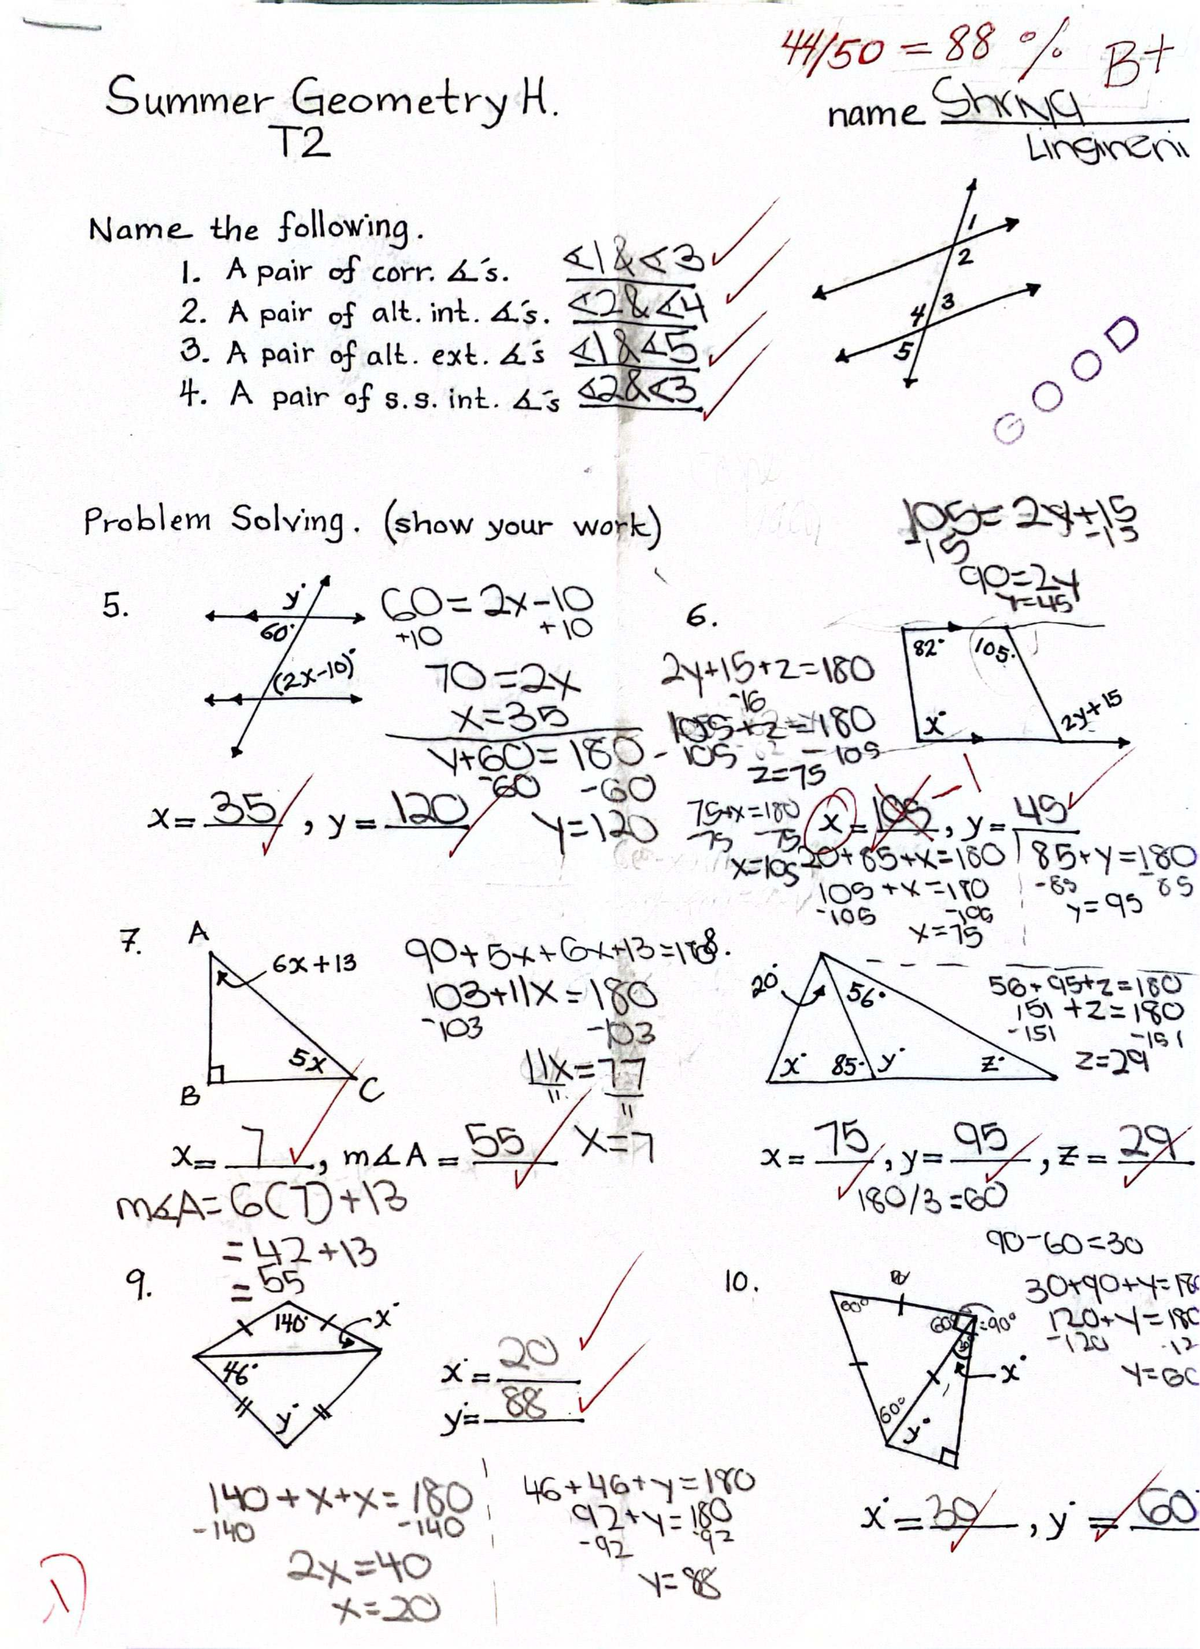 44/50 = 88 % B+
Summer Geometry H.
T2
name Shriya
Lingineni
Name the following.
1. A pair of corr. ∡'s. ∡1&∡3
2. A pair of alt. int. ∡'s. ∡2&∡4
3. A pair of alt. ext. ∡'s ∡1&∡5
4. A pair of s.s. int. ∡'s ∡2&∡3
1
2
3
4
5
GOOD
Problem Solving. (show your work)
5.
y°
60°
(2x-10)°
60=2x-10
+10 +10
70=2x
x=35
y+60=180
-60 -60
y=120
x= 35, y= 120
6.
105=2y+15
-15 -15
90=2y
y=45
82° 105°
x° 2y+15
2y+15+z=180
105+z=180
-105 -105
z=75
75+x=180
-75 -75
x=105
x= 105, y= 45
-1
7.
A
6x+13
5x
B C
90+5x+6x+13=180
103+11x=180
-103 -103
11x=77
11 11
x=7
x= 7, m∡A= 55
m∡A=6(7)+13
=42+13
=55
8.
20+85+x=180
105+x=180
-105 -105
x=75
85+y=180
-85 85
y=95
20° 56°
x° 85° y° z°
56+95+z=180
151+z=180
-151 -151
z=29
x= 75, y= 95, z= 29
9.
140° x°
46°
y°
x= 20
y= 88
140+x+x=180
-140 -140
2x=40
x=20
46+46+y=180
92+y=180
-92 -92
y=88
10.
180/3=60
90-60=30
30+90+y=180
120+y=180
-120 -12
y=60
60° 60° =90°
30°
x°
60°
y°
x°= 30, y°= 60°